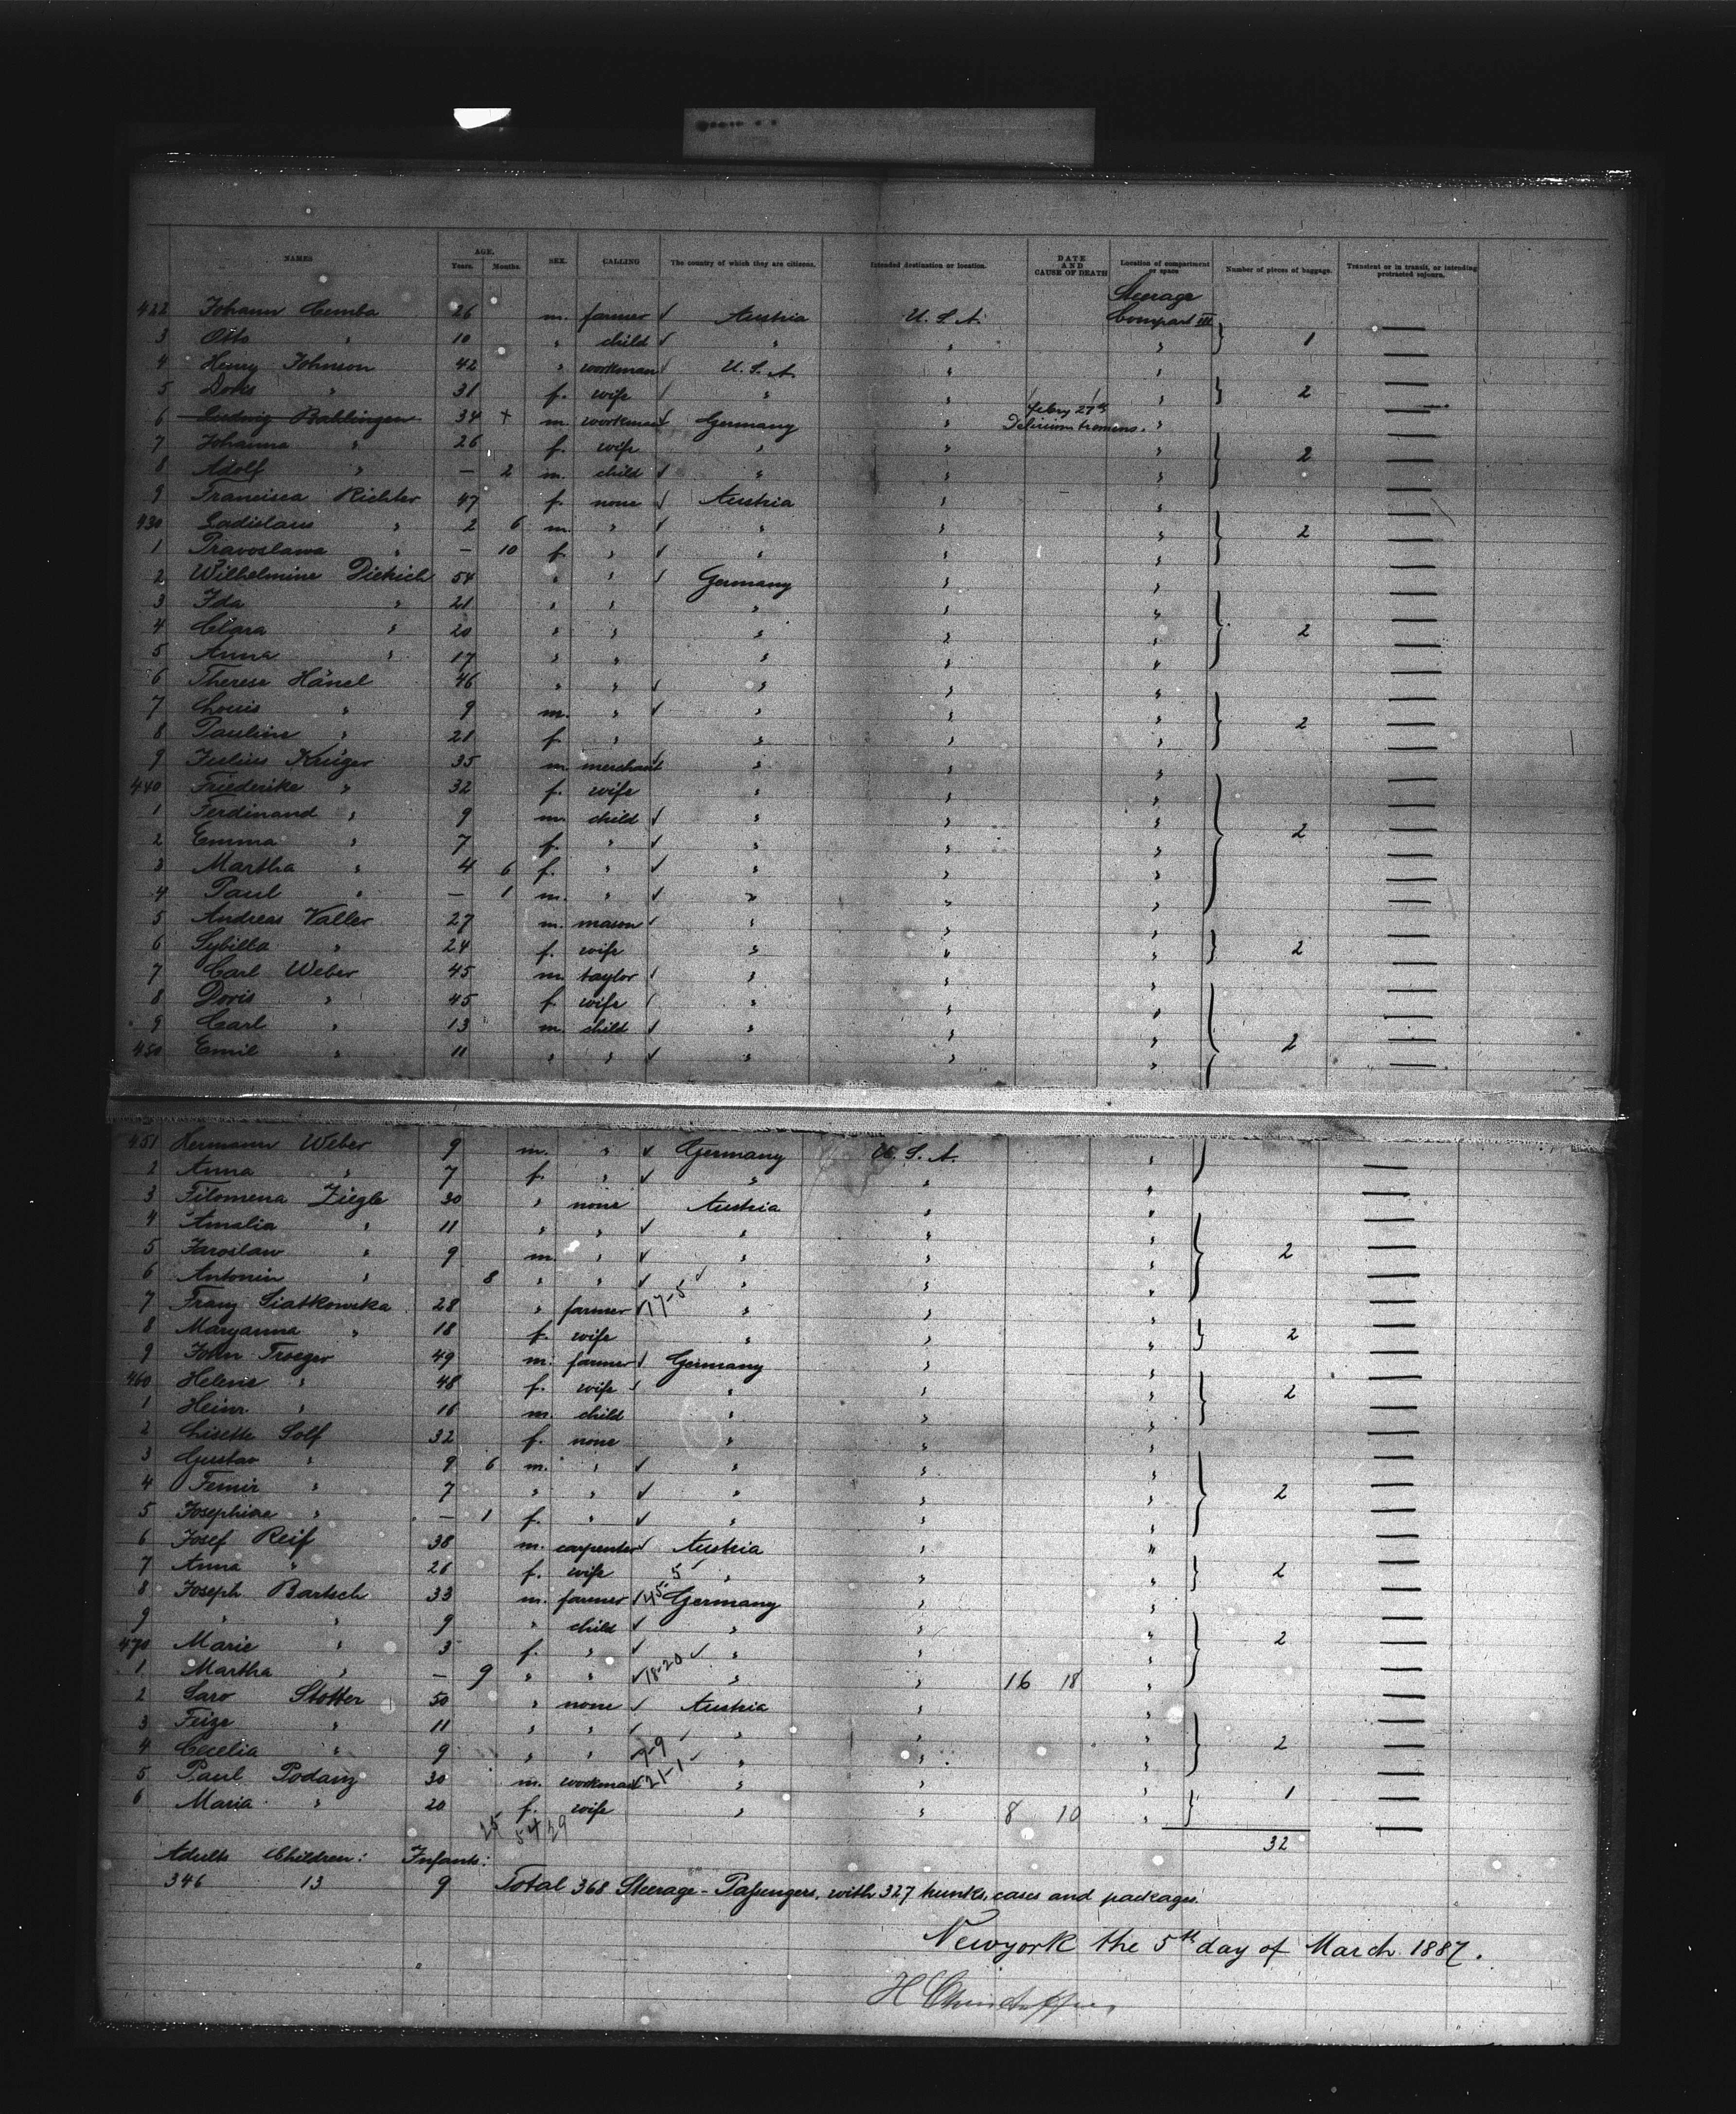 NAMES AGE. Years. Months. SEX. CALLING The country of which they are citizens. Intended destination or location. DATE AND CAUSE OF DEATH Location of compartment or space Number of pieces of baggage. Transient or in transit, or intending protracted sojourn.
Steerage
422 Johann Cemba 26 m. farmer ✓ Austria U. S. A. Compart III —
3 Otto " 10 " child ✓ " " " 1 —
4 Henry Johnson 42 " workman U. S. A. " " —
5 Doris " 31 f. wife " " " 2 —
6 Ludwig Ballingen 34 + m. workman ✓ Germany " febry 27th Delirium tremens. " —
7 Johanna " 26 f. wife " " " 2 —
8 Adolf " — 2 m. child ✓ " " " —
9 Francisca Richter 47 f. none ✓ Austria " " —
430 Ladislaus " 2 6 m. " ✓ " " " 2 —
1 Pravoslawa " — 10 f. " ✓ " " " —
2 Wilhelmine Dietrich 54 " " ✓ Germany " " —
3 Ida " 21 " " " " " —
4 Clara " 20 " " " " " 2 —
5 Anna " 17 " " " " " —
6 Therese Hänel 46 " " ✓ " " " —
7 Louis " 9 m. " ✓ " " " 2 —
8 Pauline " 21 f. " " " " —
9 Julius Krüger 35 m. merchant " " " —
440 Friederike " 32 f. wife " " " —
1 Ferdinand " 9 m. child ✓ " " " —
2 Emma " 7 f. " ✓ " " " 2 —
3 Martha " 4 6 f. " ✓ " " " —
4 Paul " — 1 m. " ✓ " " " —
5 Andreas Valler 27 m. mason ✓ " " " —
6 Sybilla " 24 f. wife " " " 2 —
7 Carl Weber 45 m. taylor " " " —
8 Doris " 45 f. wife " " " —
9 Carl " 13 m. child ✓ " " " —
450 Emil " 11 " " ✓ " " " 2 —
451 Hermann Weber 9 m. " ✓ Germany U. S. A. " —
2 Anna " 7 f. " ✓ " " " —
3 Filomena Ziegle 30 " none Austria " " —
4 Amalia " 11 " " ✓ " " " —
5 Jaroslaw " 9 m. " ✓ " " " 2 —
6 Antonin " 8 " " ✓ " " " —
7 Franz Siatkowska 28 " farmer ✓ 17-5 ✓ " " " —
8 Maryanna " 18 f. wife " " " 2 —
9 John Troeger 49 m. farmer ✓ Germany " " —
460 Helene " 48 f. wife ✓ " " " 2 —
1 Heinr. " 16 m. child " " " —
2 Lisette Solf 32 f. none " " " —
3 Gustav " 9 6 m. " ✓ " " " —
4 Femir " 7 " " ✓ " " " 2 —
5 Josephine " — 1 f. " ✓ " " " —
6 Josef Reif 38 m. carpenter ✓ Austria " " —
7 Anna " 26 f. wife " " " 2 —
8 Joseph Bartsch 33 m. farmer ✓ 45-5 ✓ Germany " " —
9 " " 9 " child ✓ " " " —
470 Marie " 3 f. " ✓ " " " 2 —
1 Martha " — 9 " " ✓ 18-20 ✓ " " 16 18 " —
2 Saro Stotter 50 " none ✓ Austria " " —
3 Feige " 11 " " ✓ " " " —
4 Cecelia " 9 " " 7-9 ✓ " " " 2 —
5 Paul Podanz 30 m. workman ✓ 21-1 ✓ " " " —
6 Maria " 20 f. wife " " 8 10 " 1 —
25 54/29 32
Adults Children: Infants:
346 13 9 Total 368 Steerage-Passengers, with 327 trunks, cases and packages.
Newyork the 5th day of March 1887.